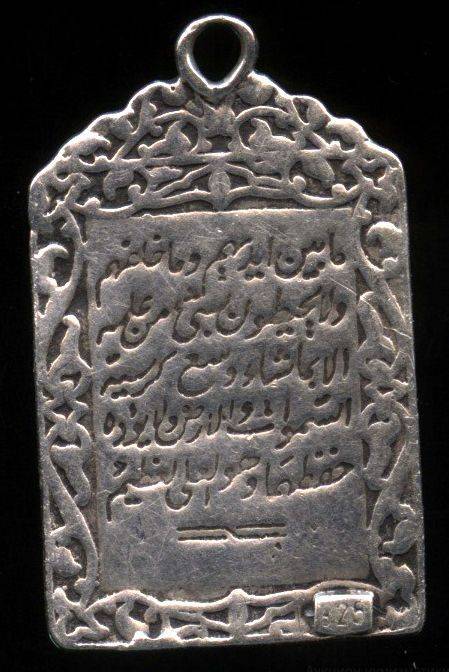 ما بين ايديهم وما خلفهم
ولا يحيطون بشئ من علمه
الا بما شاء وسع كرسيه
السموات والارض ولا يؤده
حفظهما وهو العلى العظيم